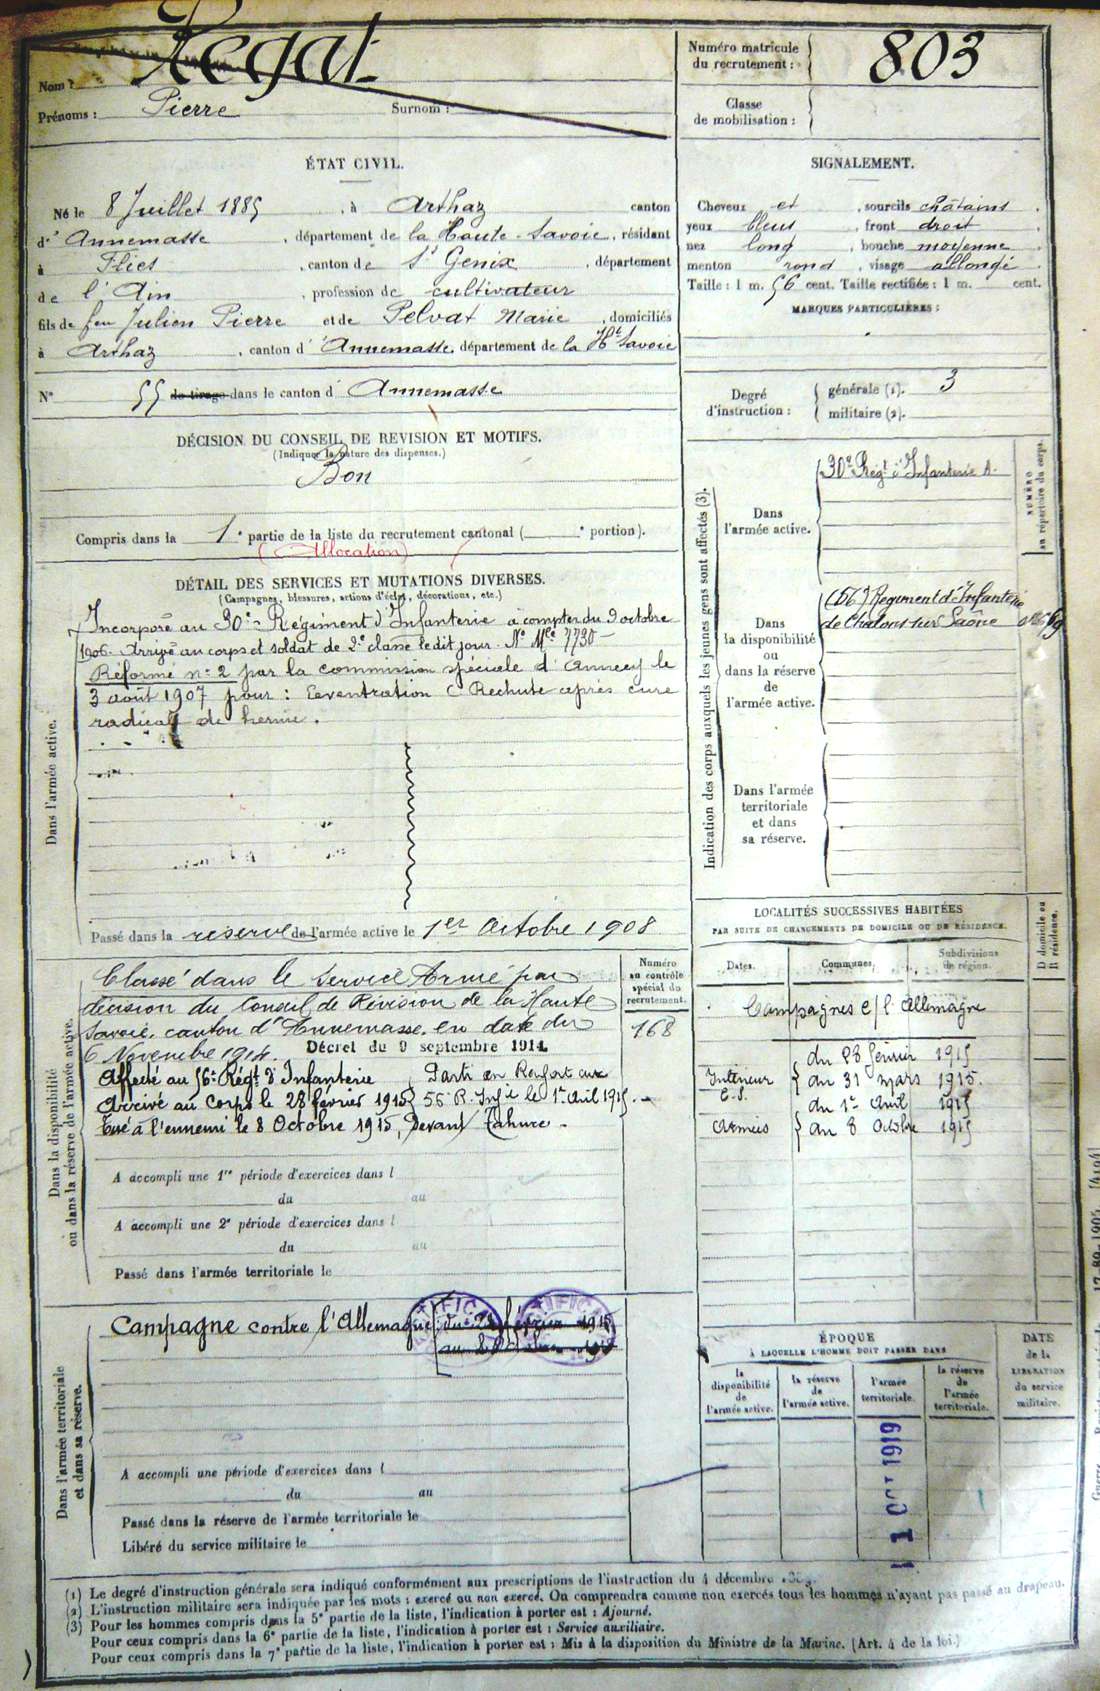 Nom : Regat
Prénoms : Pierre Surnom :
Numéro matricule
du recrutement : 803
Classe
de mobilisation :
ÉTAT CIVIL.
Né le 8 Juillet 1885, à Arthaz canton
d' Annemasse, département de la Haute-Savoie, résidant
à Flies, canton de St Genix, département
de l'Ain, profession de cultivateur
fils de feu Julien Pierre et de Pelvat Marie, domiciliés
à Arthaz, canton d' Annemasse, département de la Hte Savoie
N° 55 de tirage dans le canton d' Annemasse
SIGNALEMENT.
Cheveux et, sourcils châtains,
yeux bleus, front droit,
nez long, bouche moyenne
menton rond, visage allongé
Taille : 1 m. 56 cent. Taille rectifiée : 1 m. cent.
MARQUES PARTICULIÈRES :
Degré
d'instruction :
générale (1). 3
militaire (2).
DÉCISION DU CONSEIL DE REVISION ET MOTIFS.
(Indiquer la nature des dispenses.)
Bon
Compris dans la 1e partie de la liste du recrutement cantonal ( e portion).
(Allocation)
DÉTAIL DES SERVICES ET MUTATIONS DIVERSES.
(Campagnes, blessures, actions d'éclat, décorations, etc.)
Dans l'armée active.
Incorporé au 30e Régiment d'Infanterie à compter du 9 octobre
1906. Arrivé au corps et soldat de 2e classe le dit jour. N° Mle 7730
Réformé n° 2 par la commission spéciale d'Annecy le
3 août 1907 pour : Eventration C Rechute après cure
radicale de hernie.
Passé dans la réserve de l'armée active le 1er Octobre 1908.
Indication des corps auxquels les jeunes gens sont affectés (3).
NUMÉRO
au répertoire du corps.
Dans
l'armée active.
30e Régt d'Infanterie A.
Dans
la disponibilité
ou
dans la réserve
de
l'armée active.
(56e) Régiment d'Infanterie
de Chalons sur Saône
Dans l'armée
territoriale
et dans
sa réserve.
Dans la disponibilité
ou dans la réserve de l'armée active.
Numéro
au contrôle
spécial du
recrutement.
168
Classé dans le Service Armé par
décision du Conseil de Révision de la Haute
Savoie, canton d'Annemasse, en date du
6 Novembre 1914. Décret du 9 septembre 1914
Affecté au 56e Régt d'Infanterie Parti en Renfort aux
Arrivé au corps le 28 février 1915 56 R. Inf ie le 1er Avril 1915.
Tué à l'ennemi le 8 Octobre 1915, Devant Tahure.
A accompli une 1re période d'exercices dans l
du au
A accompli une 2e période d'exercices dans l
du au
Passé dans l'armée territoriale le
LOCALITÉS SUCCESSIVES HABITÉES
PAR SUITE DE CHANGEMENTS DE DOMICILE OU DE RÉSIDENCE.
D domicile ou
R résidence.
Dates. Communes. Subdivisions
de région.
Campagnes c/ l'Allemagne
du 28 février 1915
Intérieur au 31 mars 1915.
C.S. du 1er Avril 1915
Armées au 8 Octobre 1915
Dans l'armée territoriale
et dans sa réserve.
Campagne contre l'Allemagne du 28 février 1915
au 8 Octobre 1915
A accompli une période d'exercices dans l
du au
Passé dans la réserve de l'armée territoriale le
Libéré du service militaire le
ÉPOQUE
À LAQUELLE L'HOMME DOIT PASSER DANS
la
disponibilité
de
l'armée active.
la réserve
de
l'armée active.
l'armée
territoriale.
la réserve
de
l'armée
territoriale.
DATE
de la
LIBÉRATION
du service
militaire.
1 OCT 1919
(1) Le degré d'instruction générale sera indiqué conformément aux prescriptions de l'instruction du 4 décembre 1889.
(2) L'instruction militaire sera indiquée par les mots : exercé ou non exercé. On comprendra comme non exercés tous les hommes n'ayant pas passé au drapeau.
(3) Pour les hommes compris dans la 5e partie de la liste, l'indication à porter est : Ajourné.
Pour ceux compris dans la 6e partie de la liste, l'indication à porter est : Service auxiliaire.
Pour ceux compris dans la 7e partie de la liste, l'indication à porter est : Mis à la disposition du Ministre de la Marine. (Art. 4 de la loi.)